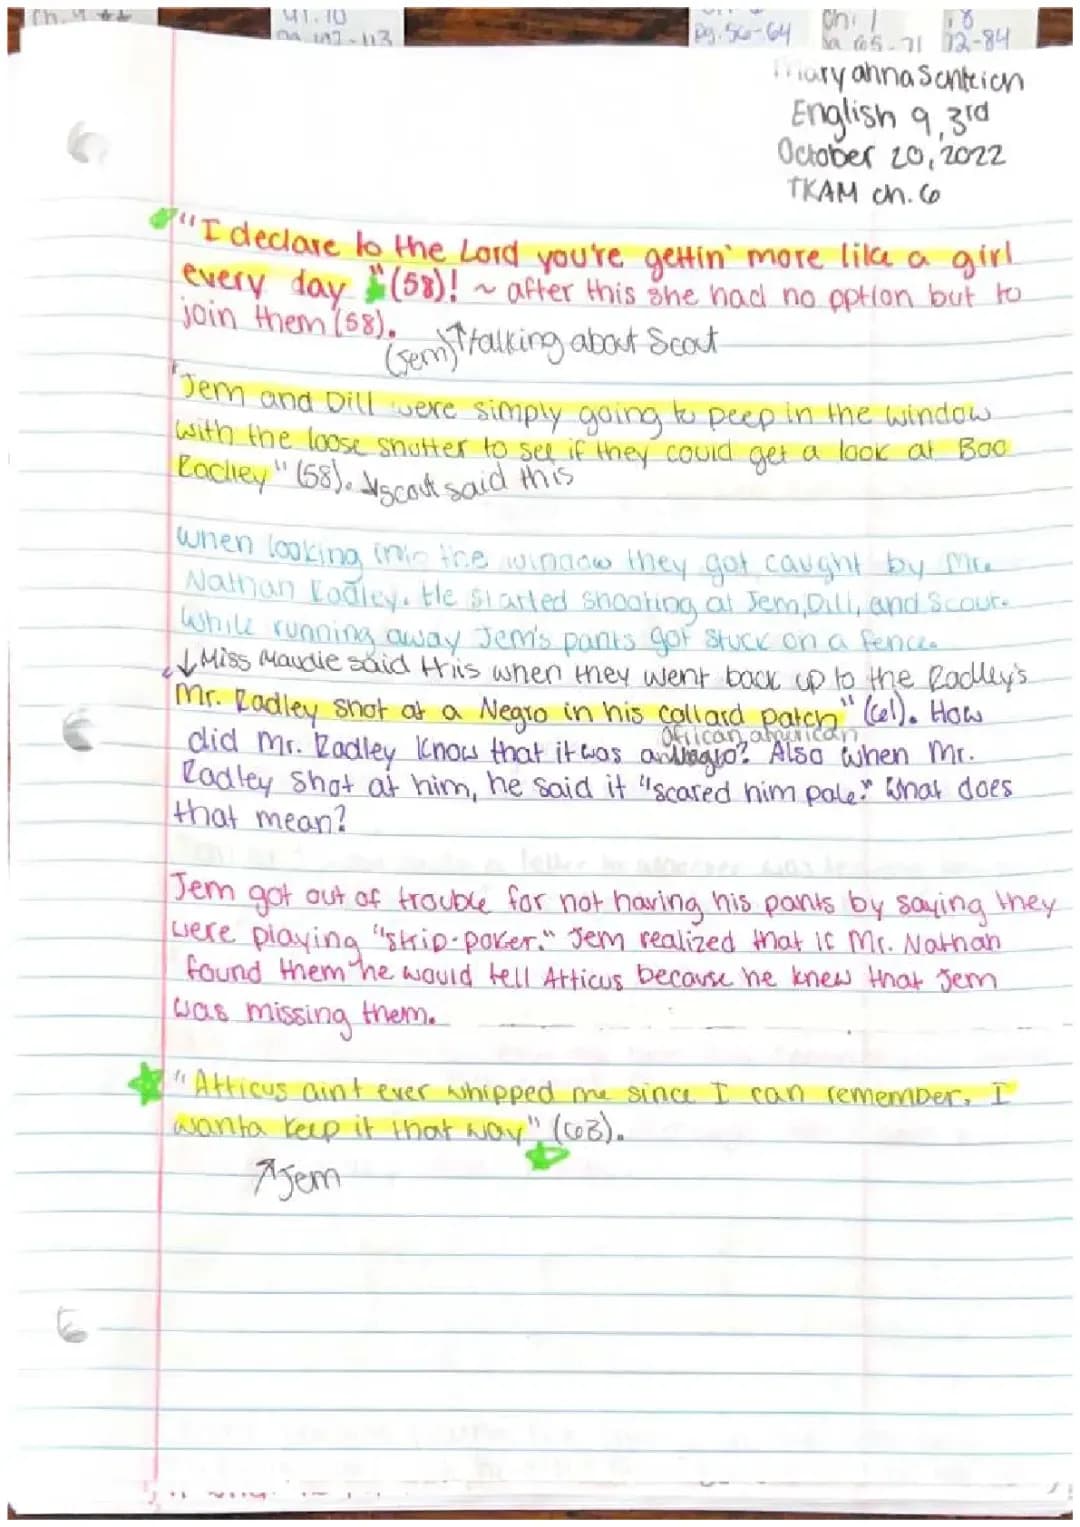 Ch. 4
pg. 56-64
Ch. 7
pg 65-71
72-84
Maryanna
English 9, 3rd
October 20, 2022
TKAM ch. 6
"I declare to the Lord you're gettin' more like a girl
every day "(58)! ~ after this she had no option but to
join them (58).
(Jem) ↑ talking about Scout
"Jem and Dill were simply going to peep in the window
with the loose shutter to see if they could get a look at Boo
Radley" (58). ↓ Scout said this
When looking into the window they got caught by Mr.
Nathan Radley. He started shooting at Jem, Dill, and Scout.
While running away Jem's pants got stuck on a fence.
↓ Miss Maudie said this when they went back up to the Radley's
Mr. Radley shot at a Negro in his collard patch" (61). How
african american
did Mr. Radley know that it was an Negro? Also when Mr.
Radley shot at him, he said it "scared him pale." What does
that mean?
Jem got out of trouble for not having his pants by saying they
were playing "strip-poker." Jem realized that if Mr. Nathan
found them he would tell Atticus because he knew that Jem
was missing them.
"Atticus aint ever whipped me since I can remember. I
wanta keep it that way" (63).
↑ Jem